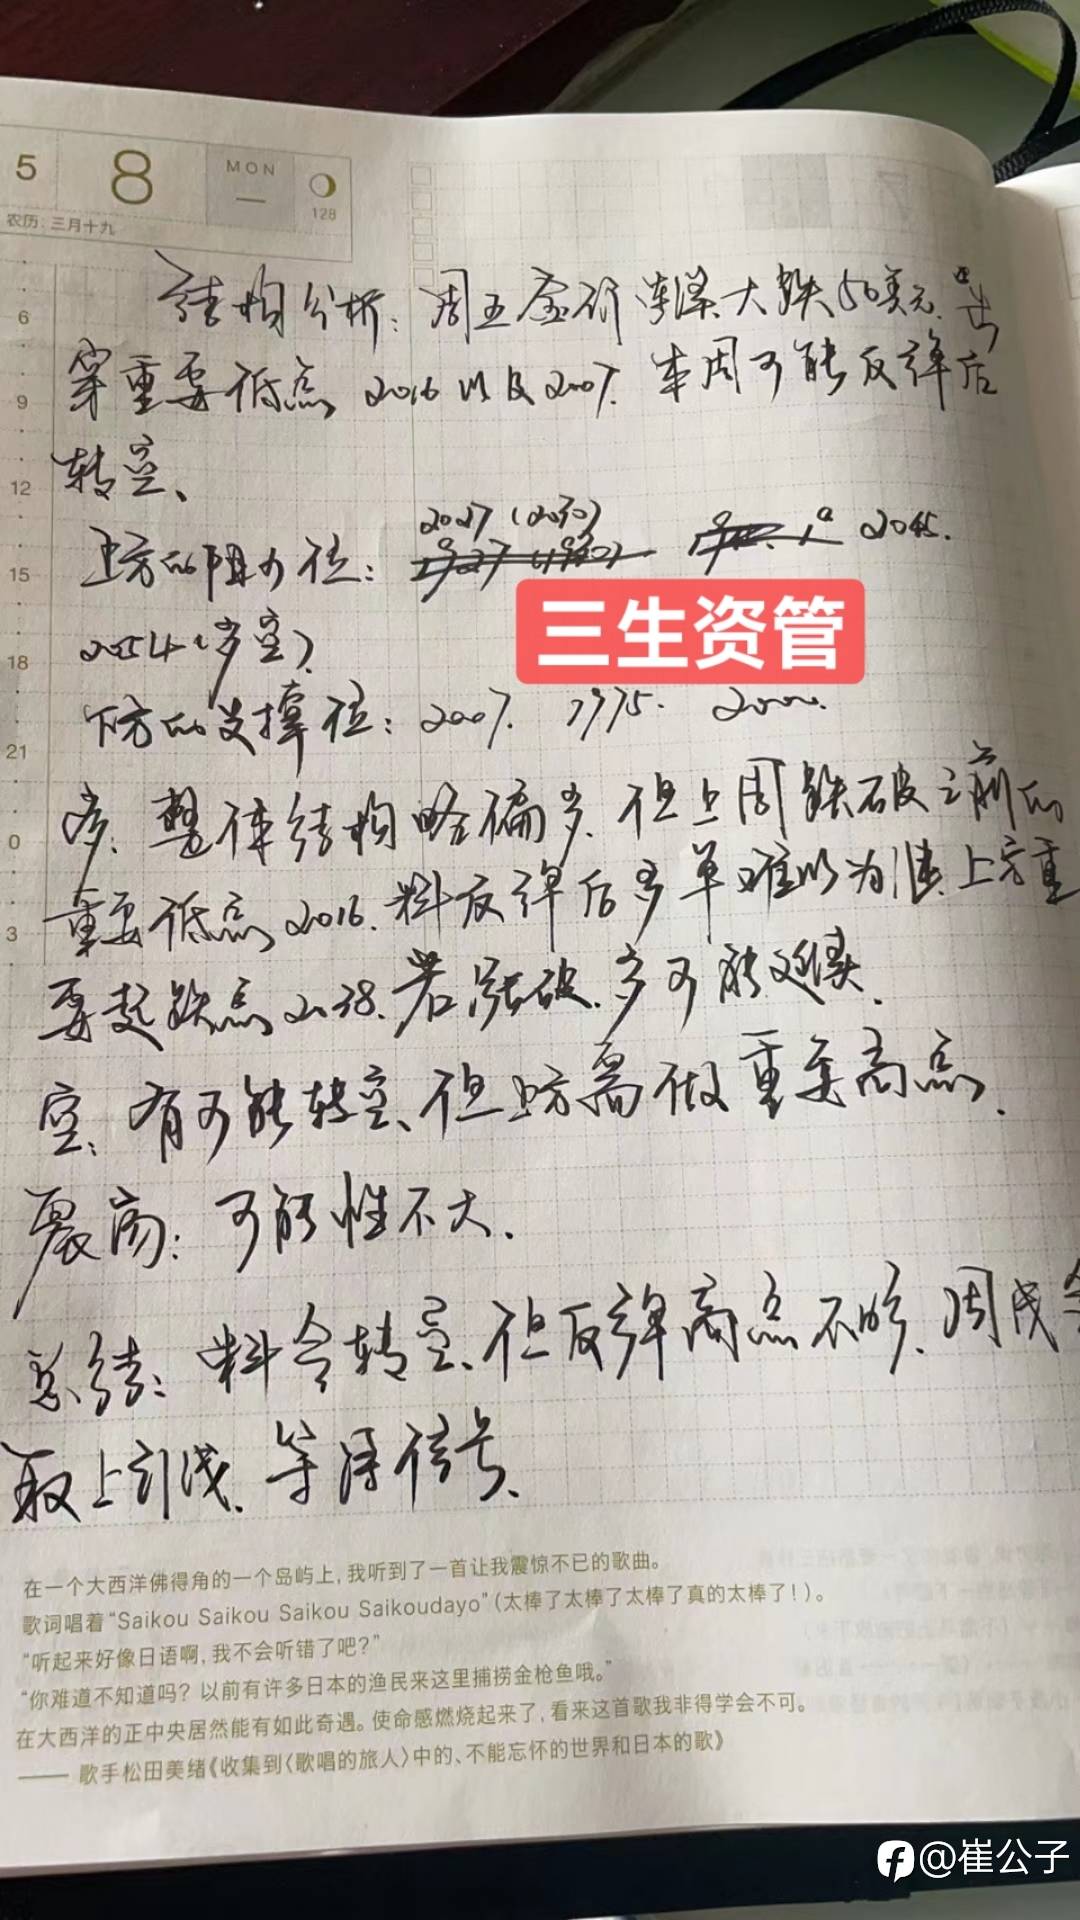 5 8 MON 一 128
农历: 三月十九
结构分析: 周五金价连续大跌50美元. 击
穿重要低点 2016 以及 2007. 本周可能反弹后
转空、
上方的阻力位: 2027 (2030) 2045.
2054 (多空)
三生资管
下方的支撑位: 2007. 1975. 2000.
多: 整体结构略偏多. 但上周跌破之前的
重要低点 2016. 料反弹后多单难以为继. 上方重
要起跌点 2038. 若涨破. 多可能延续.
空: 有可能转空、但上方需做重要高点.
震荡: 可能性不大.
总结: 料会转空、但反弹高点不够. 周线会
取上引线. 等待信号.
6
9
12
15
18
21
0
3
在一个大西洋佛得角的一个岛屿上,我听到了一首让我震惊不已的歌曲。
歌词唱着“Saikou Saikou Saikou Saikoudayo”(太棒了太棒了太棒了真的太棒了!)。
“听起来好像日语啊,我不会听错了吧?”
“你难道不知道吗? 以前有许多日本的渔民来这里捕捞金枪鱼哦。”
在大西洋的正中央居然能有如此奇遇。使命感燃烧起来了,看来这首歌我非得学会不可。
—— 歌手松田美绪《收集到〈歌唱的旅人〉中的、不能忘怀的世界和日本的歌》
@崔公子